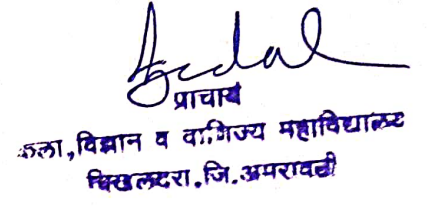 प्राचार्य
कला,विज्ञान व वाणिज्य महाविद्यालय
चिखलदरा.जि.अमरावती